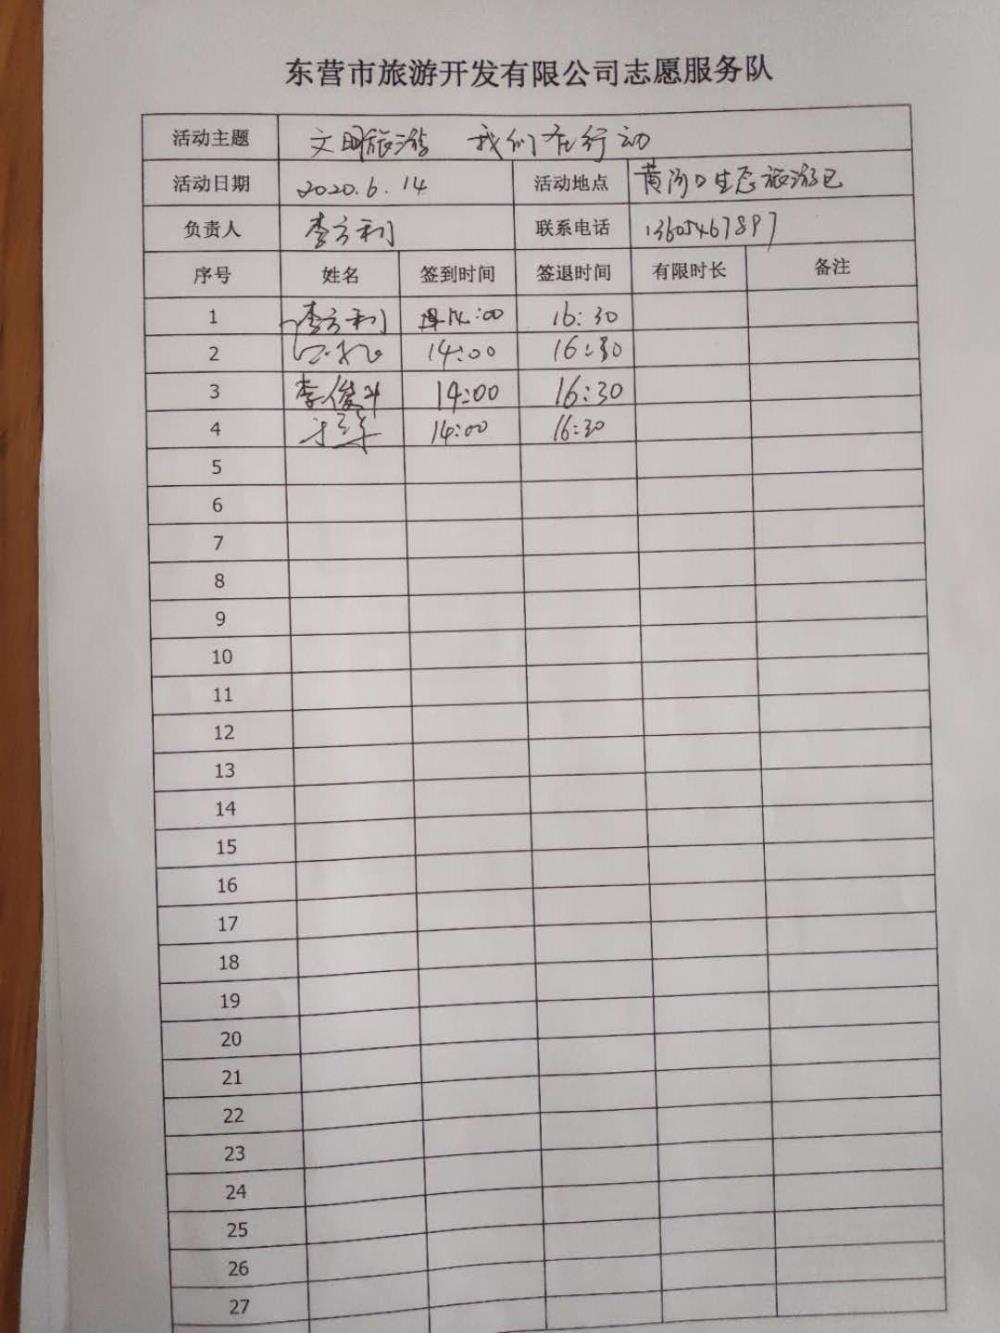 东营市旅游开发有限公司志愿服务队
活动主题 文明旅游 我们在行动
活动日期 2020.6.14 活动地点 黄河口生态旅游区
负责人 李方利 联系电话 13605467897
序号 姓名 签到时间 签退时间 有限时长 备注
1 李方利 14:00 16:30
2 14:00 16:30
3 李俊 14:00 16:30
4 14:00 16:30
5
6
7
8
9
10
11
12
13
14
15
16
17
18
19
20
21
22
23
24
25
26
27